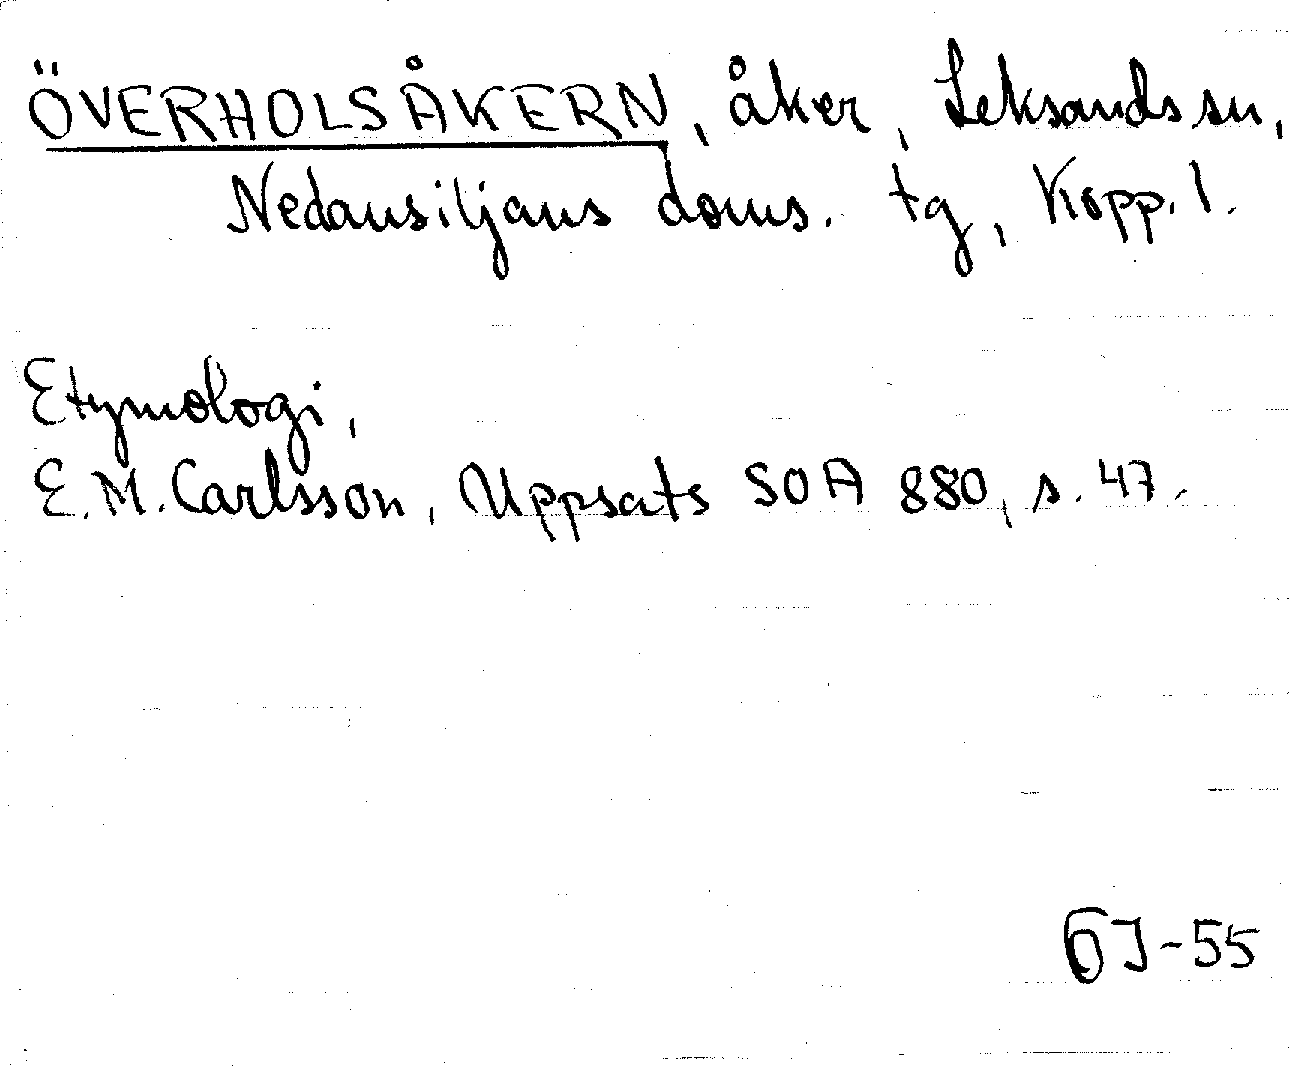 ÖVERHOLSÅKERN, åker, Leksands sn,
Nedansiljans doms. tg, Kopp. l.
Etymologi,
E.M. Carlsson, Uppsats SOA 880, s. 47.
-55